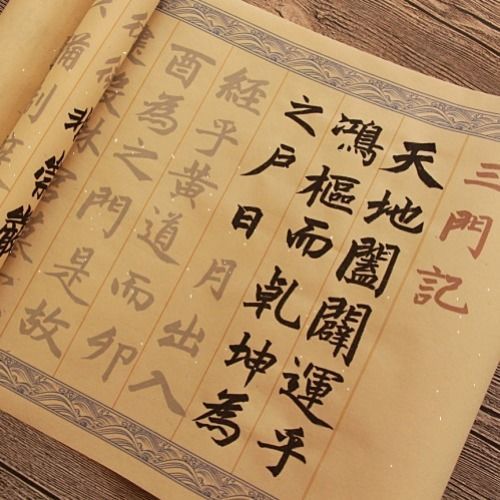 三門記
天地闔闢運乎
鴻樞而乹坤為
之戶日月出入
經乎黃道而卯
酉為之門是故